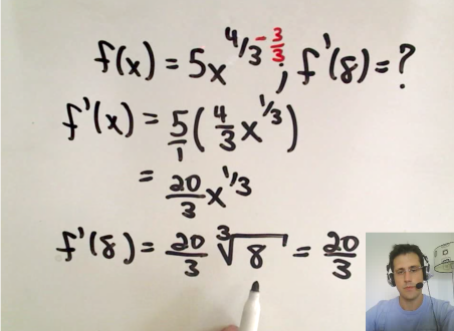 f(x) = 5x^4/3 - 3/3 ; f'(8) = ?
f'(x) = 5/1 (4/3 x^1/3)
= 20/3 x^1/3
f'(8) = 20/3 ∛8 = 20/3